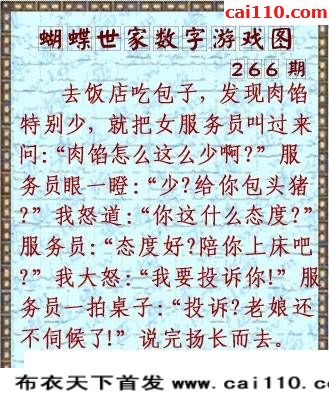 cai110.com
蝴蝶世家数字游戏图
266期
去饭店吃包子，发现肉馅
特别少，就把女服务员叫过来
问:“肉馅怎么这么少啊?” 服
务员眼一瞪:“少?给你包头猪
?” 我怒道:“你这什么态度?”
服务员:“态度好?陪你上床吧
?” 我大怒:“我要投诉你!” 服
务员一拍桌子:“投诉?老娘还
不伺候了!” 说完扬长而去。
布衣天下首发 www.cai110.c